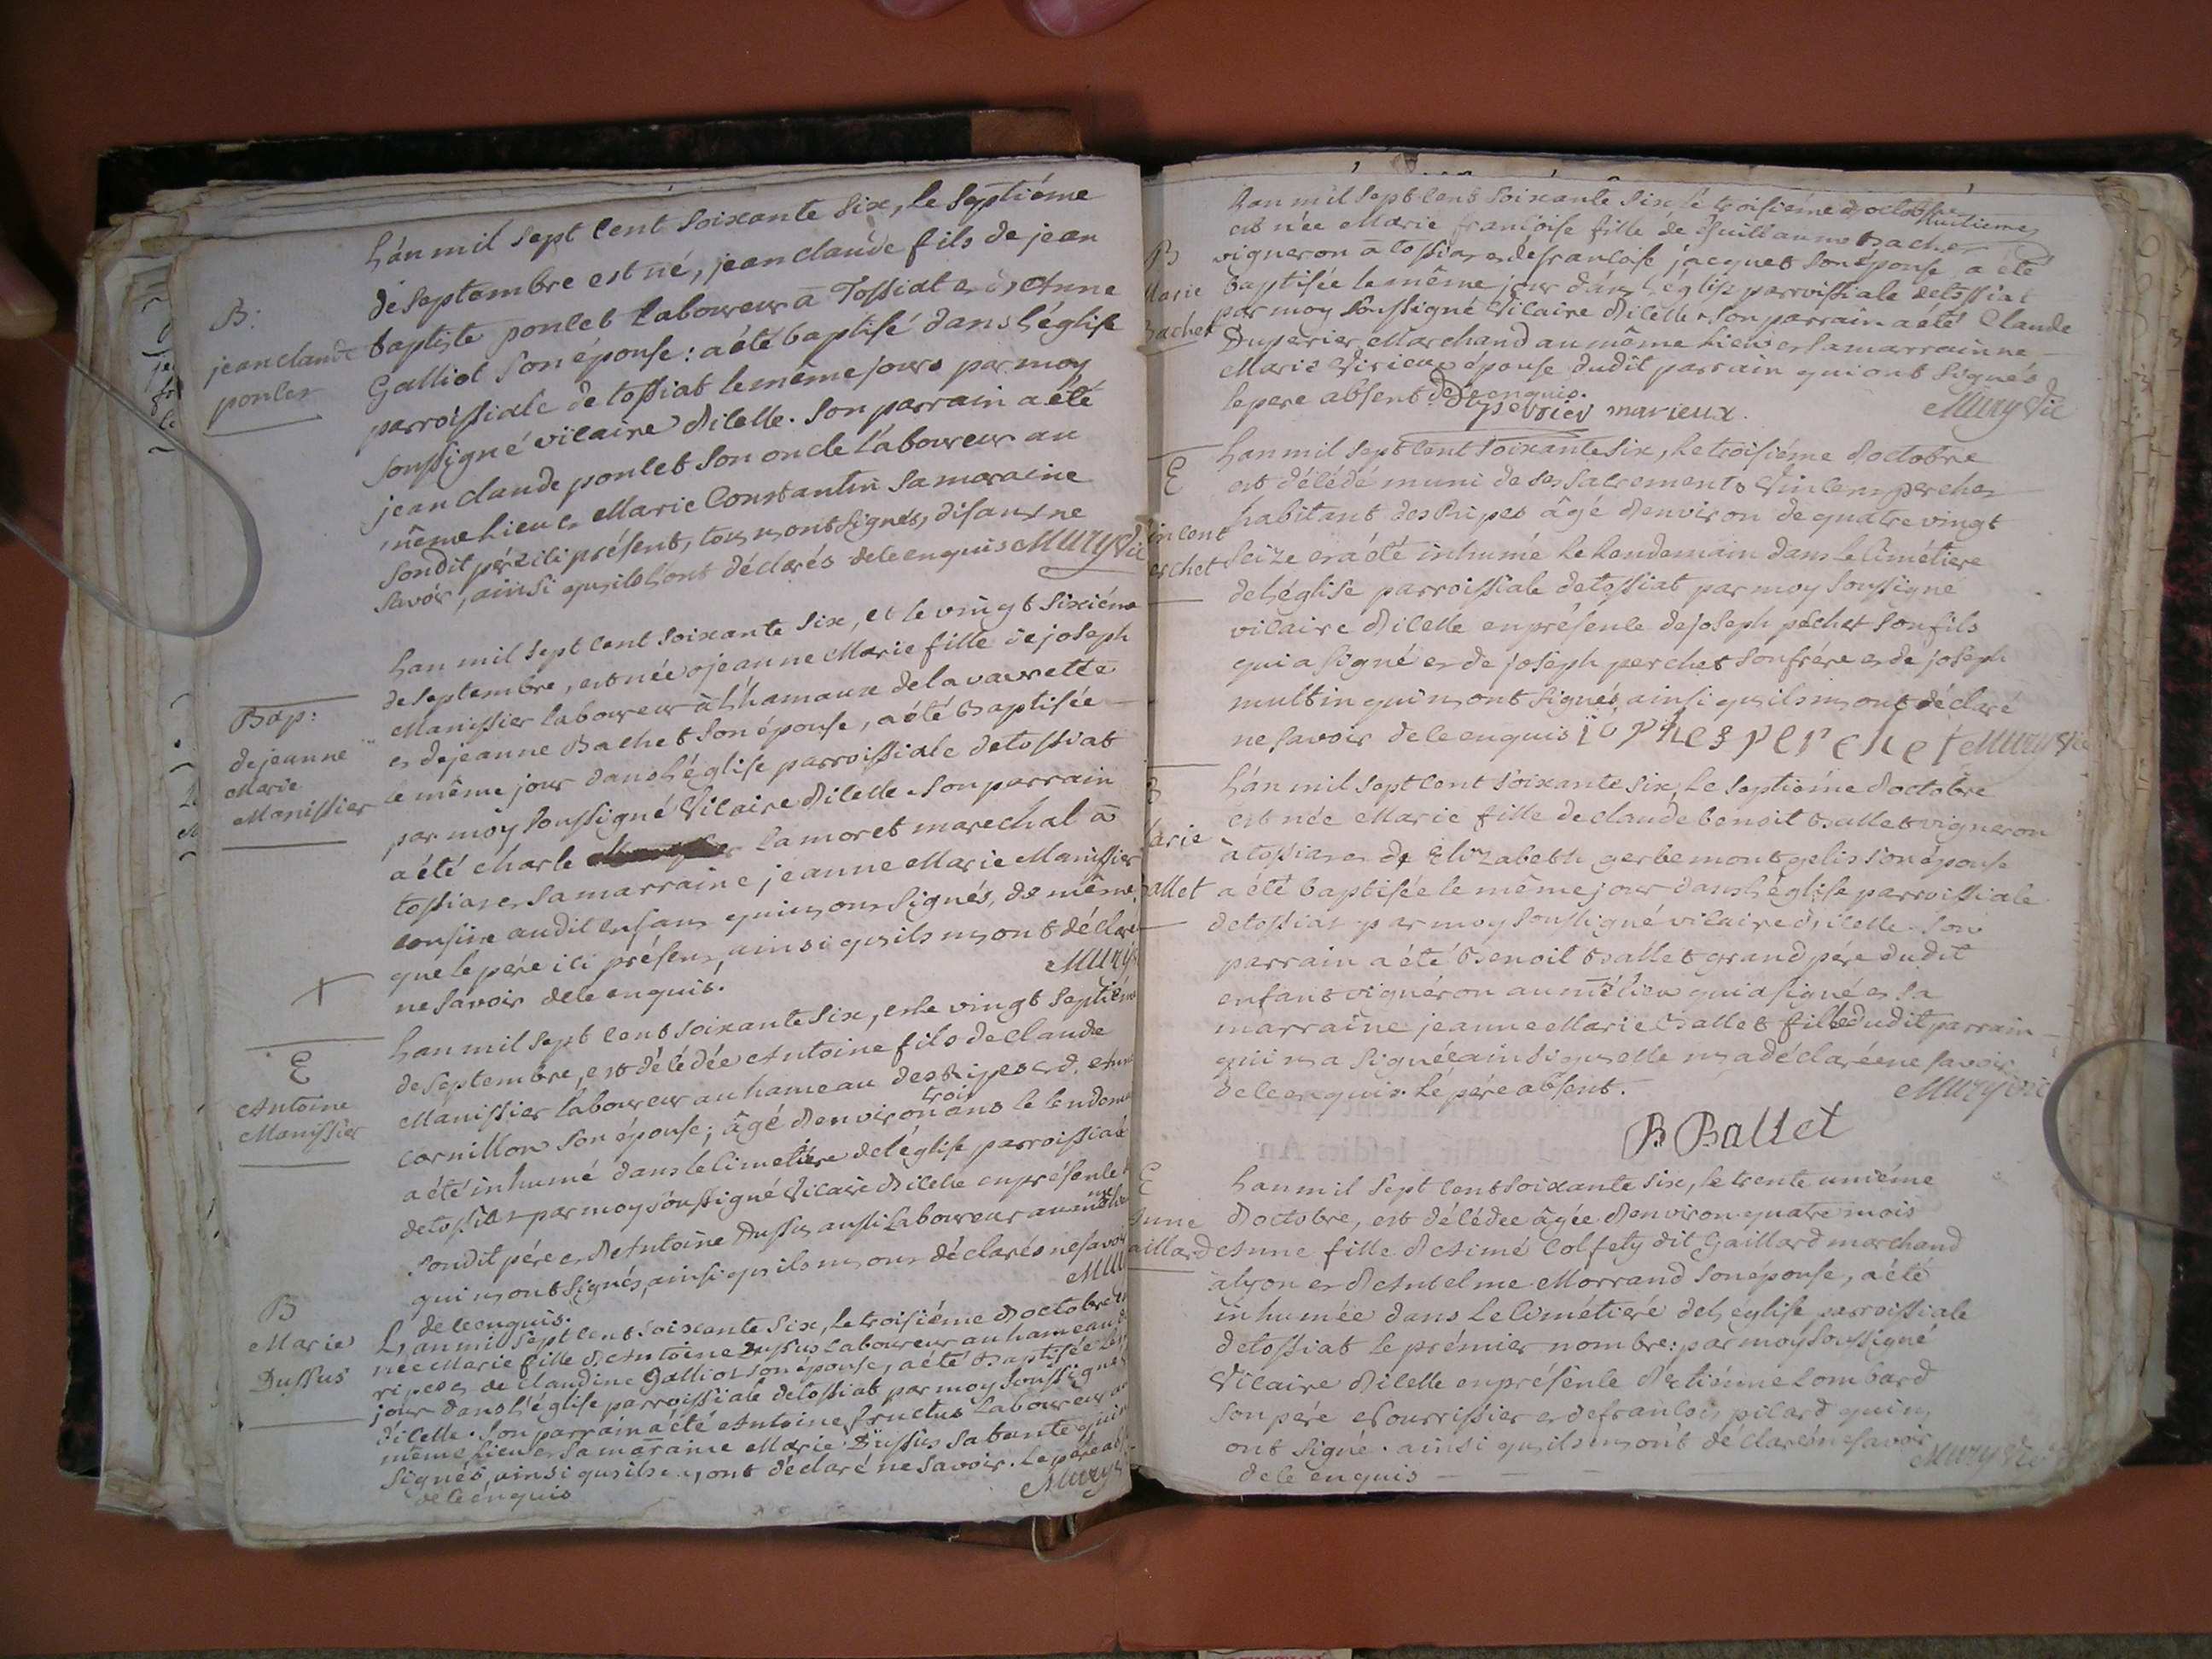 L'an mil sept cent soixante six, le septiéme
de septembre est né, jean claude fils de jean
B:
jean claude
poncet
baptiste poncet Laboureur a Tossiat et d'Anne
Galliot son épouse: a été baptisé dans l'église
parroissiale de tossiat le même jours par moy
soussigné vicaire d'icelle. son parrain a été
jean claude poncet son oncle Laboureur au
même lieu et Marie Constantin sa maraine
sondit pére ici présent, tous n'ont signés, disant ne
savoir, ainsi qu'ils l'ont déclarés de ce enquis Mury Vic
L'an mil sept cent soixante six, et le vingt sixiéme
de septembre, est née jeanne Marie fille de joseph
Bap:
de jeanne
Marie
Manissier
Manissier laboureur à l'hamaux de la vavrette
et de jeanne Bachet son épouse, a été baptisée
le même jour dans l'église parroissiale de tossiat
par moy soussigné Vicaire d'icelle. son parrain
a été charle Lamoret marechal à
tossiat et sa marraine jeanne Marie Manissier
cousine audit enfant qui n'ont signés, de même
que le pére ici présent, ainsi qu'ils m'ont déclaré
ne savoir de ce enquis.
Mury
L'an mil sept cent soixante six, et le vingt septiéme
de septembre, est décédée Antoine fils de Claude
E
Antoine
Manissier
Manissier laboureur au hameau des Ripes et d'
cornillon son épouse; âgé d'environ trois ans le lendemain
a été inhumé dans le cimetiére de l'église parroissiale
de tossiat par moy soussigné Vicaire d'icelle en présence
sondit pére et d'Antoine Dussus aussi Laboureur au même
qui n'ont signés, ainsi qu'ils m'ont déclarés ne savoir
de ce enquis.
B
Marie
Dussus
L'an mil sept cent soixante six, le troisiéme d'octobre
née Marie fille d'Antoine Dussus Laboureur au hameau
ripes et de Claudine Galliot son épouse, a été baptisée
jour dans l'église parroissiale de tossiat par moy soussigné
d'icelle. son parrain a été Antoine fructus Laboureur au
même lieu et sa maraine Marie Dussus sa tante qui
signés, ainsi qu'ils m'ont déclaré ne savoir. Le pére
de ce enquis
Mury
L'an mil sept cent soixante six le troisiéme d'octobre
huitieme
est née Marie françoise fille de Guillaume Bachet
B
Marie
Bachet
vigneron à tossiat et de françoise jacquet son épouse a été
baptisée le même jour dans l'église parroissiale de tossiat
par moy soussigné Vicaire d'icelle. son parrain a été Claude
Duperier Marchand au même Lieu et sa marrainne
Marie Virieux épouse dudit parrain qui ont signés
le pere absent de ce enquis.
marieux
Mury Vic
L'an mil sept cent soixante six, le troisiéme d'octobre
E
Vincent
perchet
est décédé muni de ses sacrements Vincent perchet
habitant des Ripes âgé d'environ de quatre vingt
seize et a été inhumé le lendemain dans le cimétiere
de l'église parroissiale de tossiat par moy soussigné
vicaire d'icelle en présence de joseph pechet son fils
qui a signé et de joseph perchet son frére et de joseph
multin qui n'ont signés, ainsi qu'ils m'ont déclaré
ne savoir de ce enquis perchet Mury Vic
L'an mil sept cent soixante six, le septiéme d'octobre
B
Marie
Ballet
est née Marie fille de claude benoit Ballet vigneron
a tossiat et de Elizabeth gerbe montgelis son épouse
a été baptisée le même jour dans l'église parroissiale
de tossiat par moy soussigné vicaire d'icelle. son
parrain a été Benoit Ballet grand pére dudit
enfant vignéron au mê lieu qui a signé et sa
marraine jeanne Marie Ballet fille dudit parrain
qui n'a signée ainsi qu'elle m'a déclarée ne savoir
de ce enquis. Le pére absent.
Mury vic
B Ballet
E
Anne
Gaillard
L'an mil sept cent soixante six, le trente uniéme
d'octobre, est décédée âgée d'environ quatre mois
Anne fille d'Aimé Colfety dit Gaillard marchand
a lyon et d'Antelme Morrand son épouse, a été
inhumée dans le cimétieré de l'eglise parroissiale
de tossiat le prémier nombre: par moy soussigné
Vicaire d'icelle en présence d'Etiénne Lombard
son pére Nourrissier et de françois pilard qui n'
ont signé. ainsi qu'ils m'ont déclarés ne savoir
de ce enquis
Mury Vic